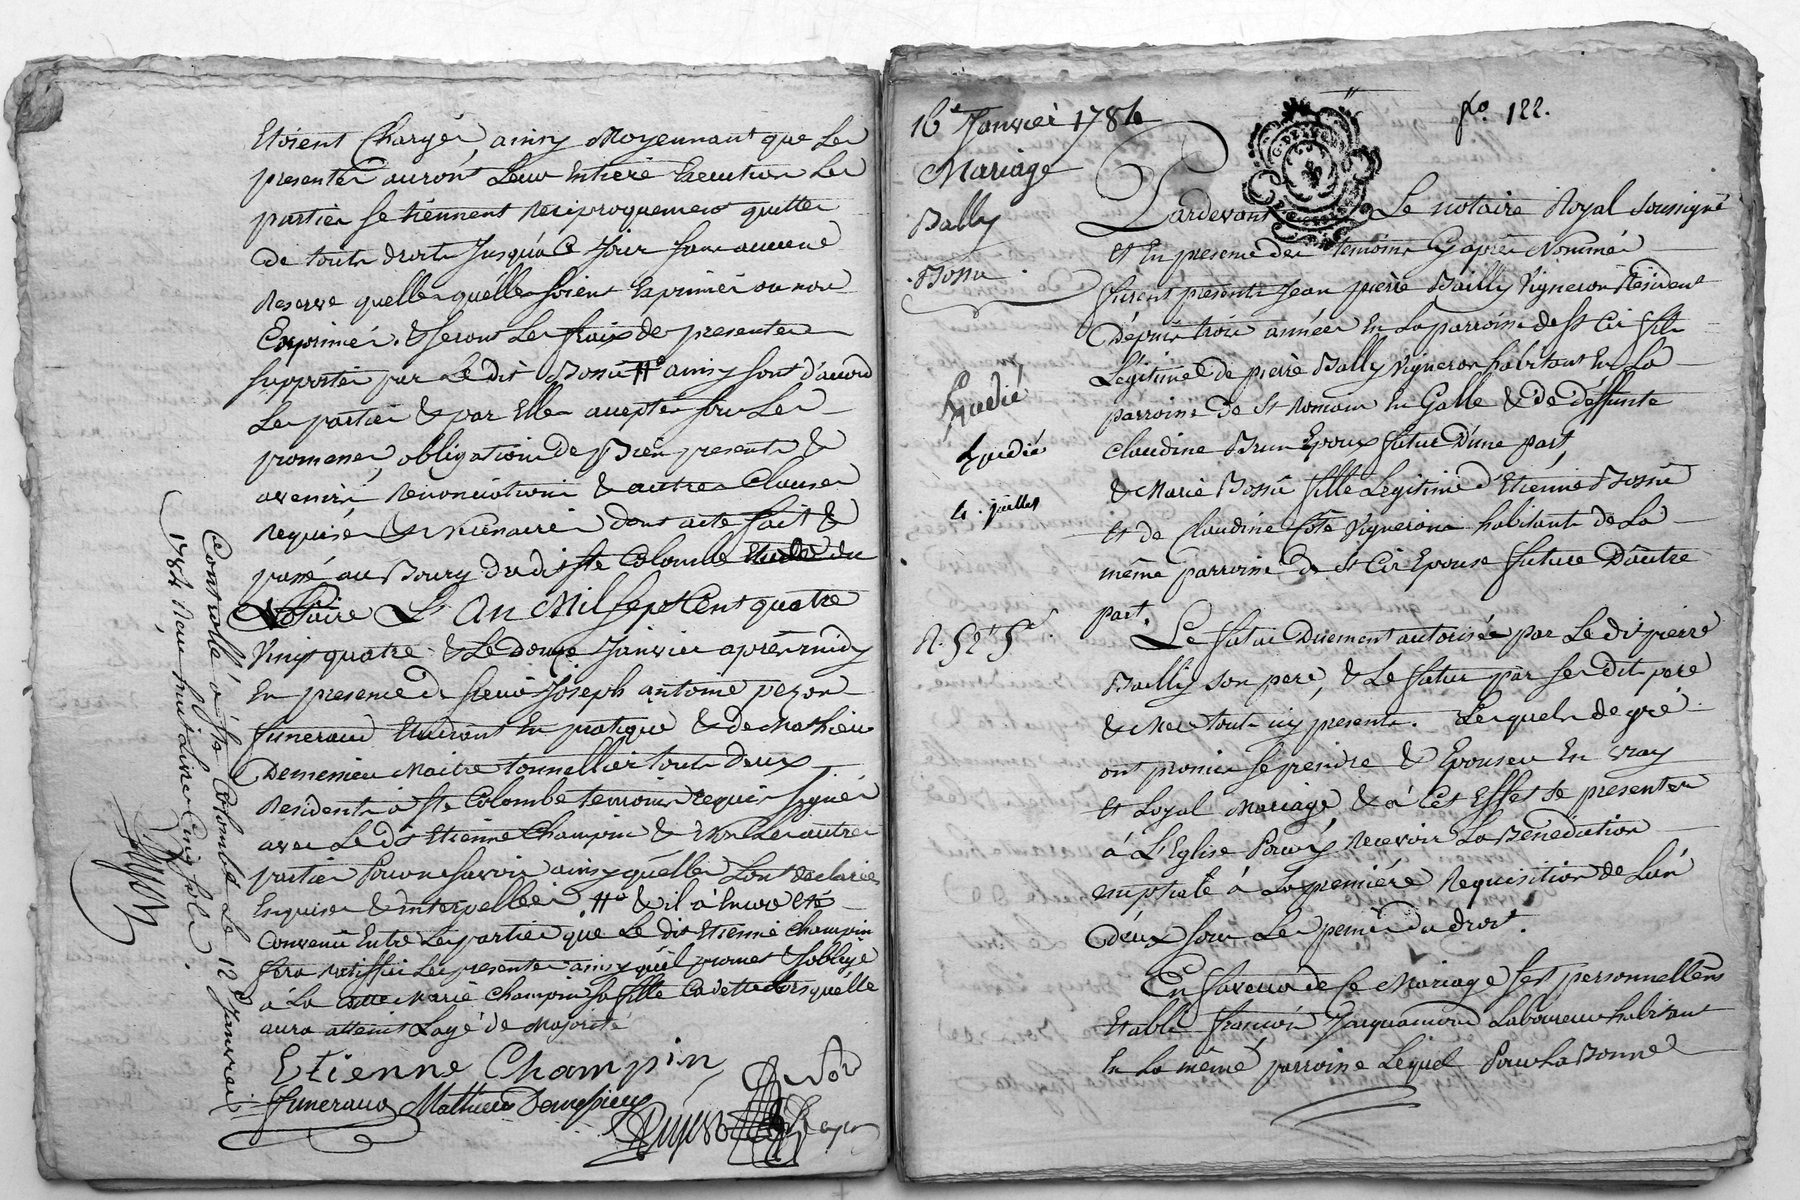 Etoient Chargés ainsy Moyennant que Les
presentes auront Leur Entiere Execution Les
parties se tiennent Reciproquement quittes
de touts droits Jusqu'à Ce Jour sans aucune
Reserve quelles qu'elles soient Exprimées ou non
Exprimées. & seront Les fraix des presentes
supportés par Le dit Bossu ainsy sont d'accord
Les parties & par Elles acceptés sous Les
promesses, obligations de Biens presents &
avenirs Renonciations & autres Clauses
requises & necessaires dont acte fait &
passé au Bourg du dit Ste Colombe Etude du
Notaire L'An Mil sept Cent quatre
Vingt quatre & Le douze Janvier après midy
En presence de sieur Joseph antoine pezon
funeraud Etudiant En pratique & de Mathieu
Demesieu Maitre tonnellier touts deux
Residents à Ste Colombe temoins requis signés
avec Le dit Etienne Champin & non Les autres
parties Pour ne savoir ainsy quelles L'ont declarées
Enquises & interpellées & il à Encore Eté
Convenu Entre Les parties que Le dit Etienne Champin
fera ratiffier Les presentes ainsy qu'il promet & s'oblige
à La Marie Champin sa fille Cadette Lorsqu'elle
aura atteint L'agé de Majorité
Etienne Champin
funeraud Mathieu Demesieux
Controllé à Ste Colombe Le 12 Janvier
1784 Reçu huit Livres Cinq sols.
16e Janvier 1784
Mariage
Bally
Bossu.
Expedié
Expedié
4. juillet
R. 52s 5d.
fo. 122.
Pardevant Le notaire Royal soussigné
Et En presence des temoins Cy après Nommés
furent presents Jean pierre Bailly Vigneron Résident
Dépuis trois années En La parroisse de St Cir fils
Légitime de pierre Bally Vigneron habitant En La
parroisse de St Romain En Galle & de déffunte
Claudine Brun Epoux futur D'une part,
& Marie Bossu fille Legitime d'Etienne Bossu
et de Claudine Côte Vignerons habitants de La
même parroisse de St Cir Epouse future D'autre
part.
Le futur Duement autorisé par Le dit pierre
Bailly son pere, & Le futur par ses dit pere
& Mere touts icy presents. Lesquels de gré
ont promis se prendre & Epouser En vray
et Loyal Mariage, & à Cet Effet se presenter
à L'Eglise Pour y Recevoir La Bénédiction
nuptiale à La premiére Requisition de L'un
d'eux sous Les peines du droit.
En faveur de Ce Mariage s'est personnellement
Etabli françois Jacquamond Laboureur habitant
En La même parroisse Lequel Pour La Bonne